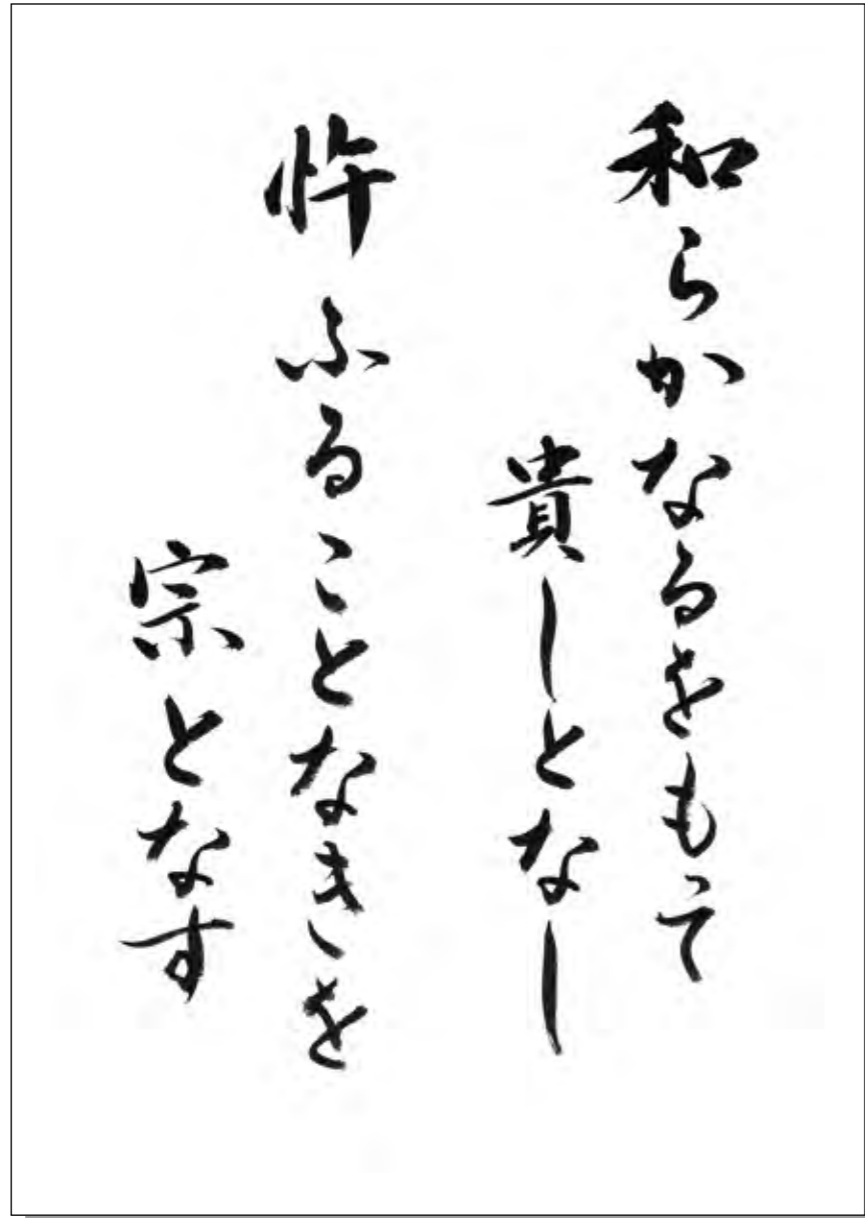 和らかなるをもって
貴しとなし
忤ふることなきを
宗となす